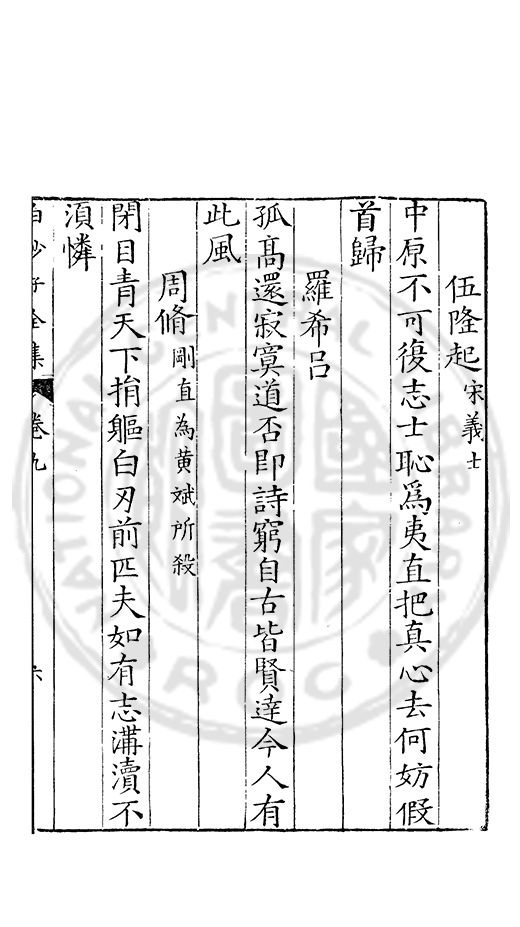 伍隆起宋義士
中原不可復志士恥爲夷直把真心去何妨假
首歸
羅希呂
孤髙還寂寞道否即詩窮自古皆賢逹今人有
此風
周脩剛直為黄斌所殺
閉目青天下捐軀白刃前匹夫如有志溝瀆不
湏憐
白沙子全集 卷九 六